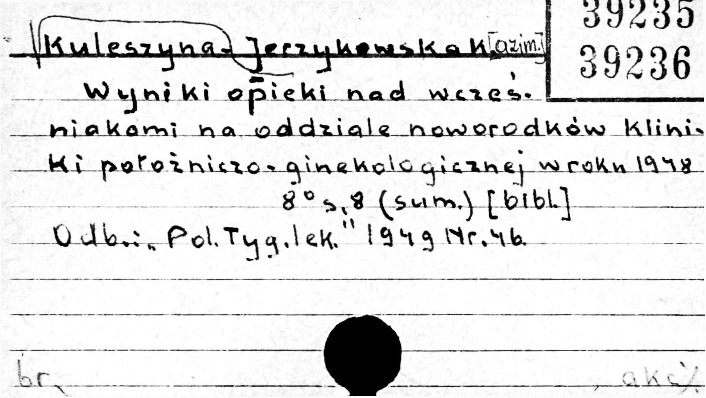 39235
39236
Kuleszyna-Jerzykowska K[azim.]
Wyniki opieki nad wcześ-
niakami na oddziale noworodków Klini-
ki położniczo-ginekologicznej w roku 1948
8° s. 8 (sum.) [bibl.]
Odb.: "Pol. Tyg. lek." 1949 Nr. 46.
br.